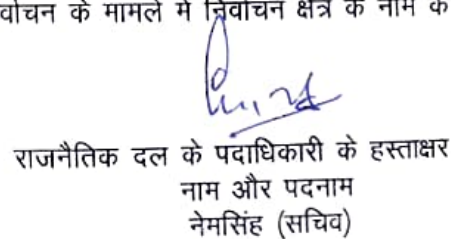 र्वाचन के मामले में निर्वाचन क्षेत्र के नाम के
राजनैतिक दल के पदाधिकारी के हस्ताक्षर
नाम और पदनाम
नेमसिंह (सचिव)